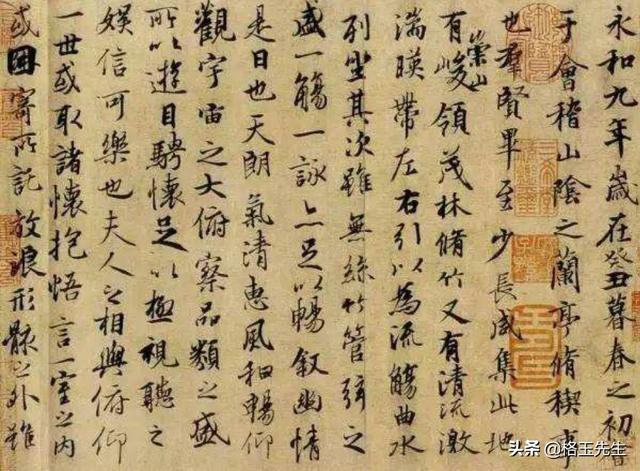 永和九年歲在癸丑暮春之初會
于會稽山陰之蘭亭脩稧事
也羣賢畢至少長咸集此地
有崇山峻領茂林脩竹又有清流激
湍暎帶左右引以為流觴曲水
列坐其次雖無絲竹管弦之
盛一觴一詠亦足以暢叙幽情
是日也天朗氣清惠風和暢仰
觀宇宙之大俯察品類之盛
所以遊目騁懷足以極視聽之
娛信可樂也夫人之相與俯仰
一世或取諸懷抱悟言一室之內
或因寄所託放浪形骸之外雖
头条 @格王先生